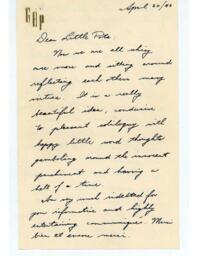 GAP
April 20/44
Dear Little Pete:
Now we are all shiny
are more and sitting around
reflecting each others many
virtues. It is a really
beautiful idea, conducive
to pleasant soliloquy with
happy little word thoughts
gamboling around the innocent
parchment and having a
hell of a time.
Am very much indebted for
your informative and highly
entertaining communique.